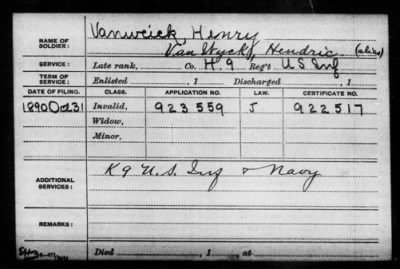 NAME OF SOLDIER: Vanweick, Henry
Van Wyck, Hendric (alias)
SERVICE: Late rank, Co. H. 9 Reg't US Inf
TERM OF SERVICE: Enlisted , 1 Discharged , 1
DATE OF FILING. CLASS. APPLICATION NO. LAW. CERTIFICATE NO.
1890 Oct 31 Invalid, 923559 J 922517
Widow,
Minor.
ADDITIONAL SERVICES: K 9 U.S. Inf & Navy
REMARKS:
Died , 1 , at